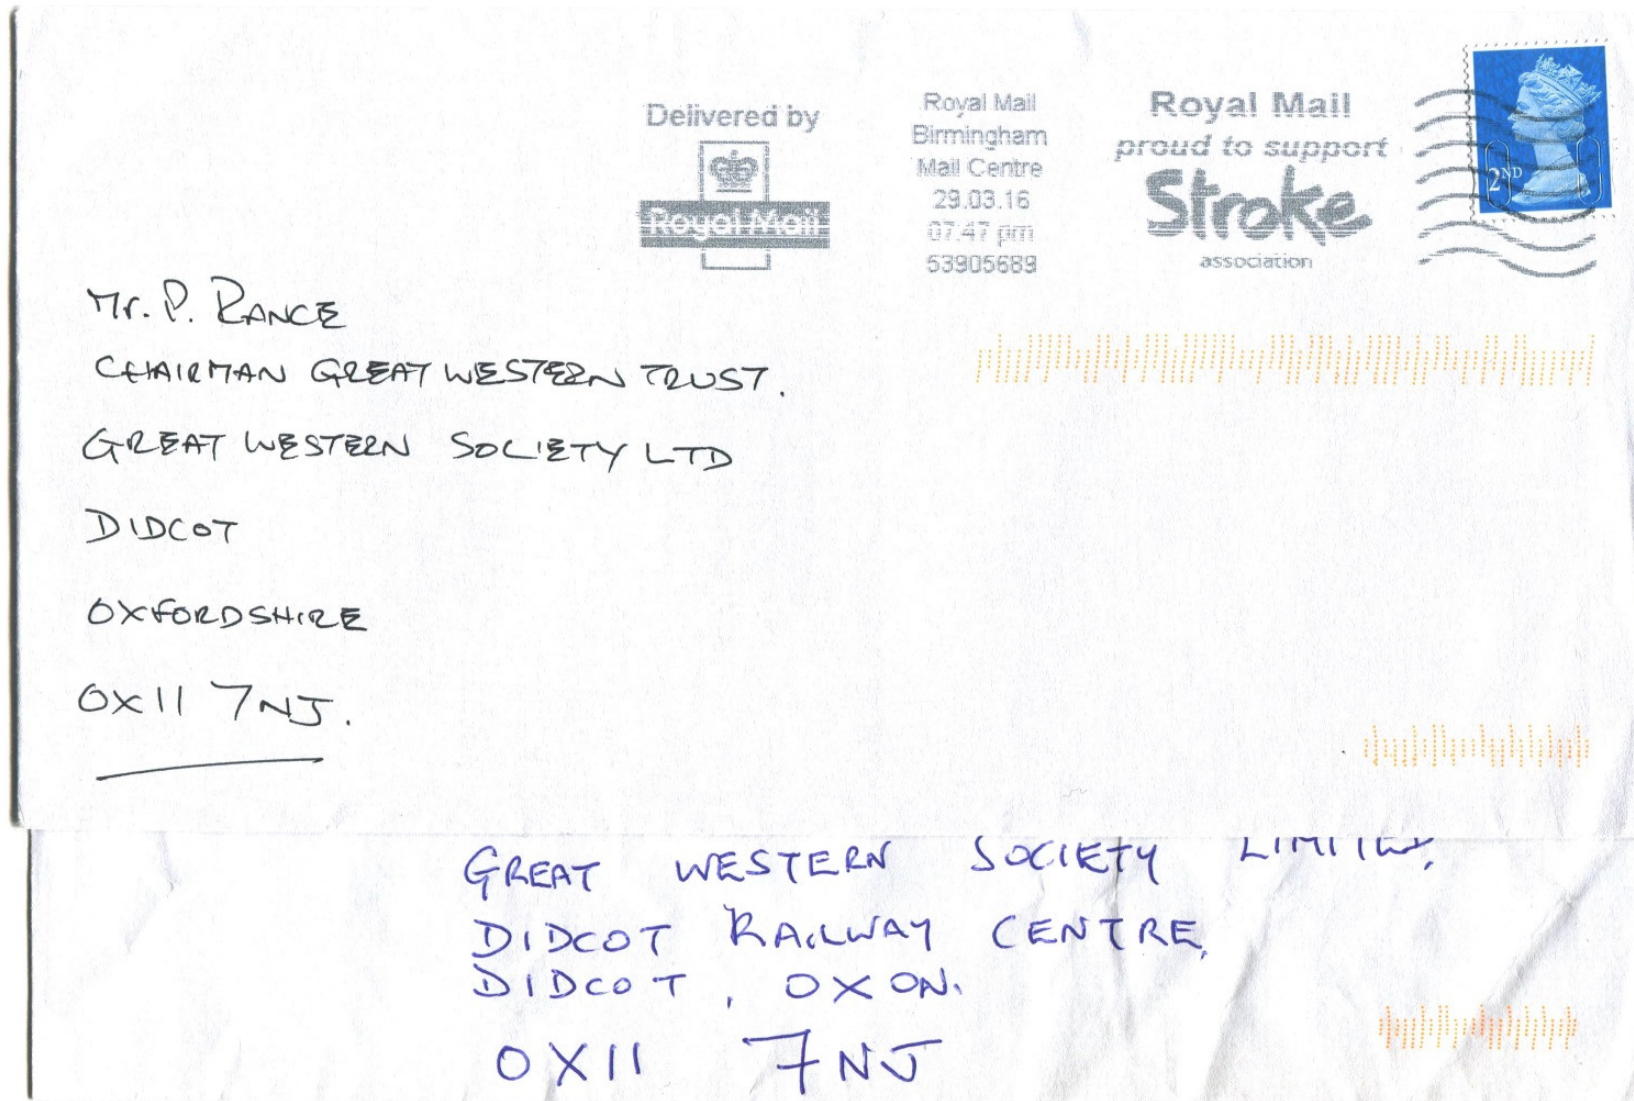 Delivered by
Royal Mail
Royal Mail
Birmingham
Mail Centre
29.03.16
07.47 pm
53905689
Royal Mail
proud to support
Stroke
association
2ND
Mr. P. RANCE
CHAIRMAN GREAT WESTERN TRUST.
GREAT WESTERN SOCIETY LTD
DIDCOT
OXFORDSHIRE
OX11 7NJ.
GREAT WESTERN SOCIETY LIMITED,
DIDCOT RAILWAY CENTRE,
DIDCOT, OXON.
OX11 7NJ